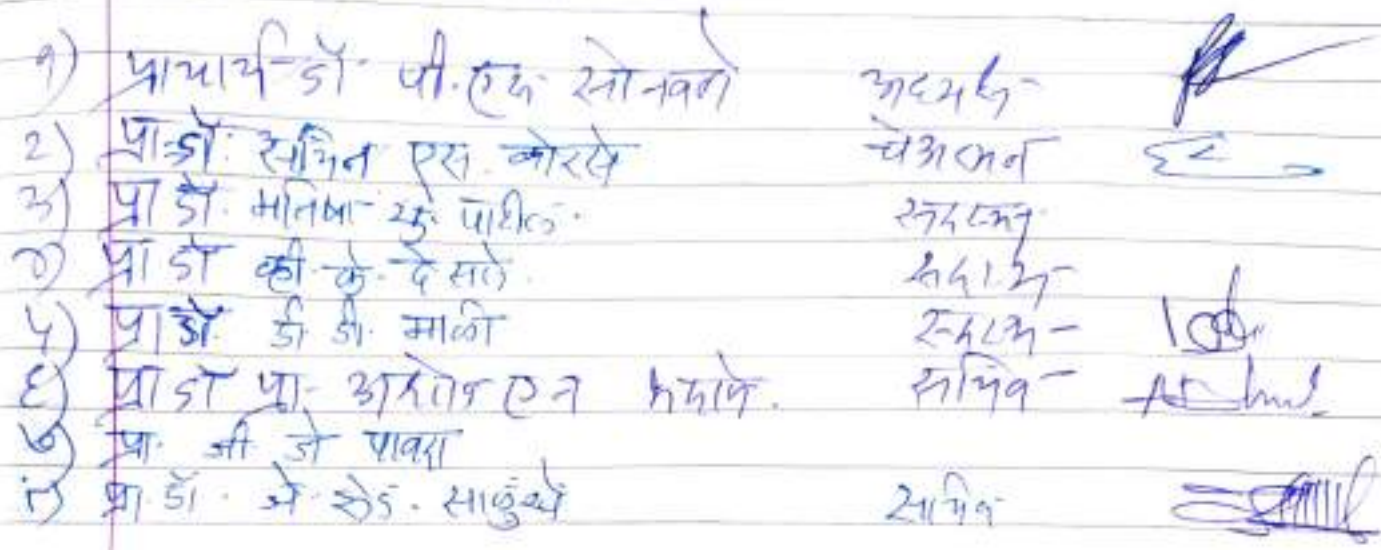 १) प्राचार्य डॉ. पी. एच. सोनवणे अध्यक्ष
२) प्रा. डॉ. सचिन एस. कोरसे चेअरमन
३) प्रा डॉ. मनिषा पाटील. सदस्य
४) प्रा डॉ व्ही. के. देसले. सदस्य
५) प्रा डॉ. डी. डी. माळी सदस्य
६) प्रा डॉ प्रा. एन सचिव
७) प्रा. जी जे पावरा
८) प्रा. डॉ. जे. झेड. साळुंखे सचिव